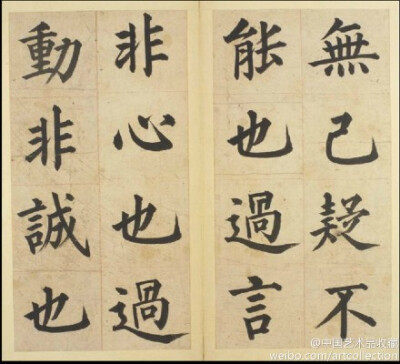 無己疑不
能也過言
非心也過
動非誠也
@中国艺术品收藏
weibo.com/artcollection